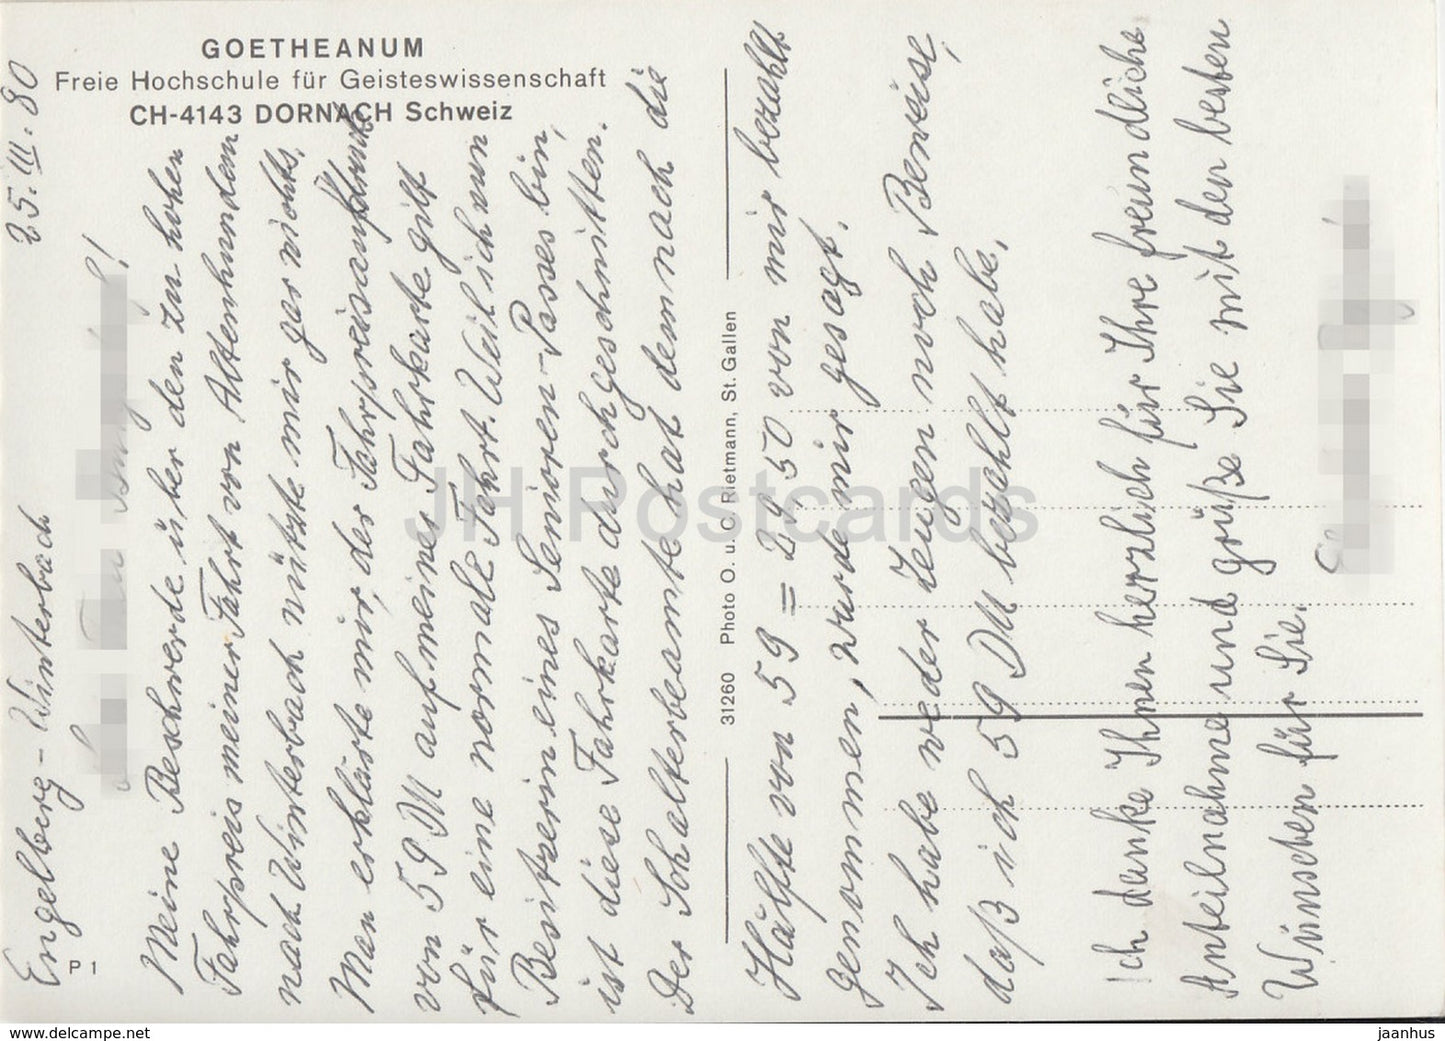 GOETHEANUM
Freie Hochschule für Geisteswissenschaft
CH-4143 DORNACH Schweiz
Engelberg-Winterbach 25. III. 80
!
Meine Beschwerde über den zu hohen
Fahrpreis meiner Fahrt von Altenhundem
nach Winterbach nützte mir gar nichts.
Man erklärte mir, der Fahrpreisaufdruck
von 59 DM auf meiner Fahrkarte gilt
für eine normale Fahrt. Weil ich nun
Besitzerin eines Senioren-Passes bin,
ist diese Fahrkarte durchgeschnitten.
Der Schalterbeamte hat demnach die
Hälfte von 59 = 29,50 von mir bezahlt
genommen, wurde mir gesagt.
Ich habe weder Zeugen noch Beweise,
daß ich 59 DM bezahlt habe.
Ich danke Ihnen herzlich für Ihre freundliche
Anteilnahme und grüße Sie mit den besten
Wünschen für Sie.
P 1
31260 Photo O. u. C. Rietmann, St. Gallen
JH Postcards
www.delcampe.net
jaanhus